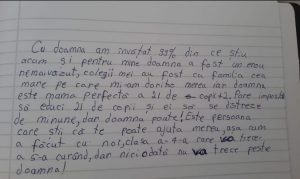 Cu doamna am invatat 99% din ce stiu
acum și pentru mine doamna a fost un erou
nemaivazut, colegii mei au fost ca familia cea
mare pe care mi-am dorit-o mereu iar doamna
este mama perfecta a 21 de copii+2. Pare imposibil
să educi 21 de copii și ei să se distreze
de minune, dar doamna poate! Este persoana
care știi că te poate ajuta mereu, așa cum
a făcut cu noi, clasa a-4-a care va trece
a 5-a curând, dar niciodată nu va trece peste
doamna!